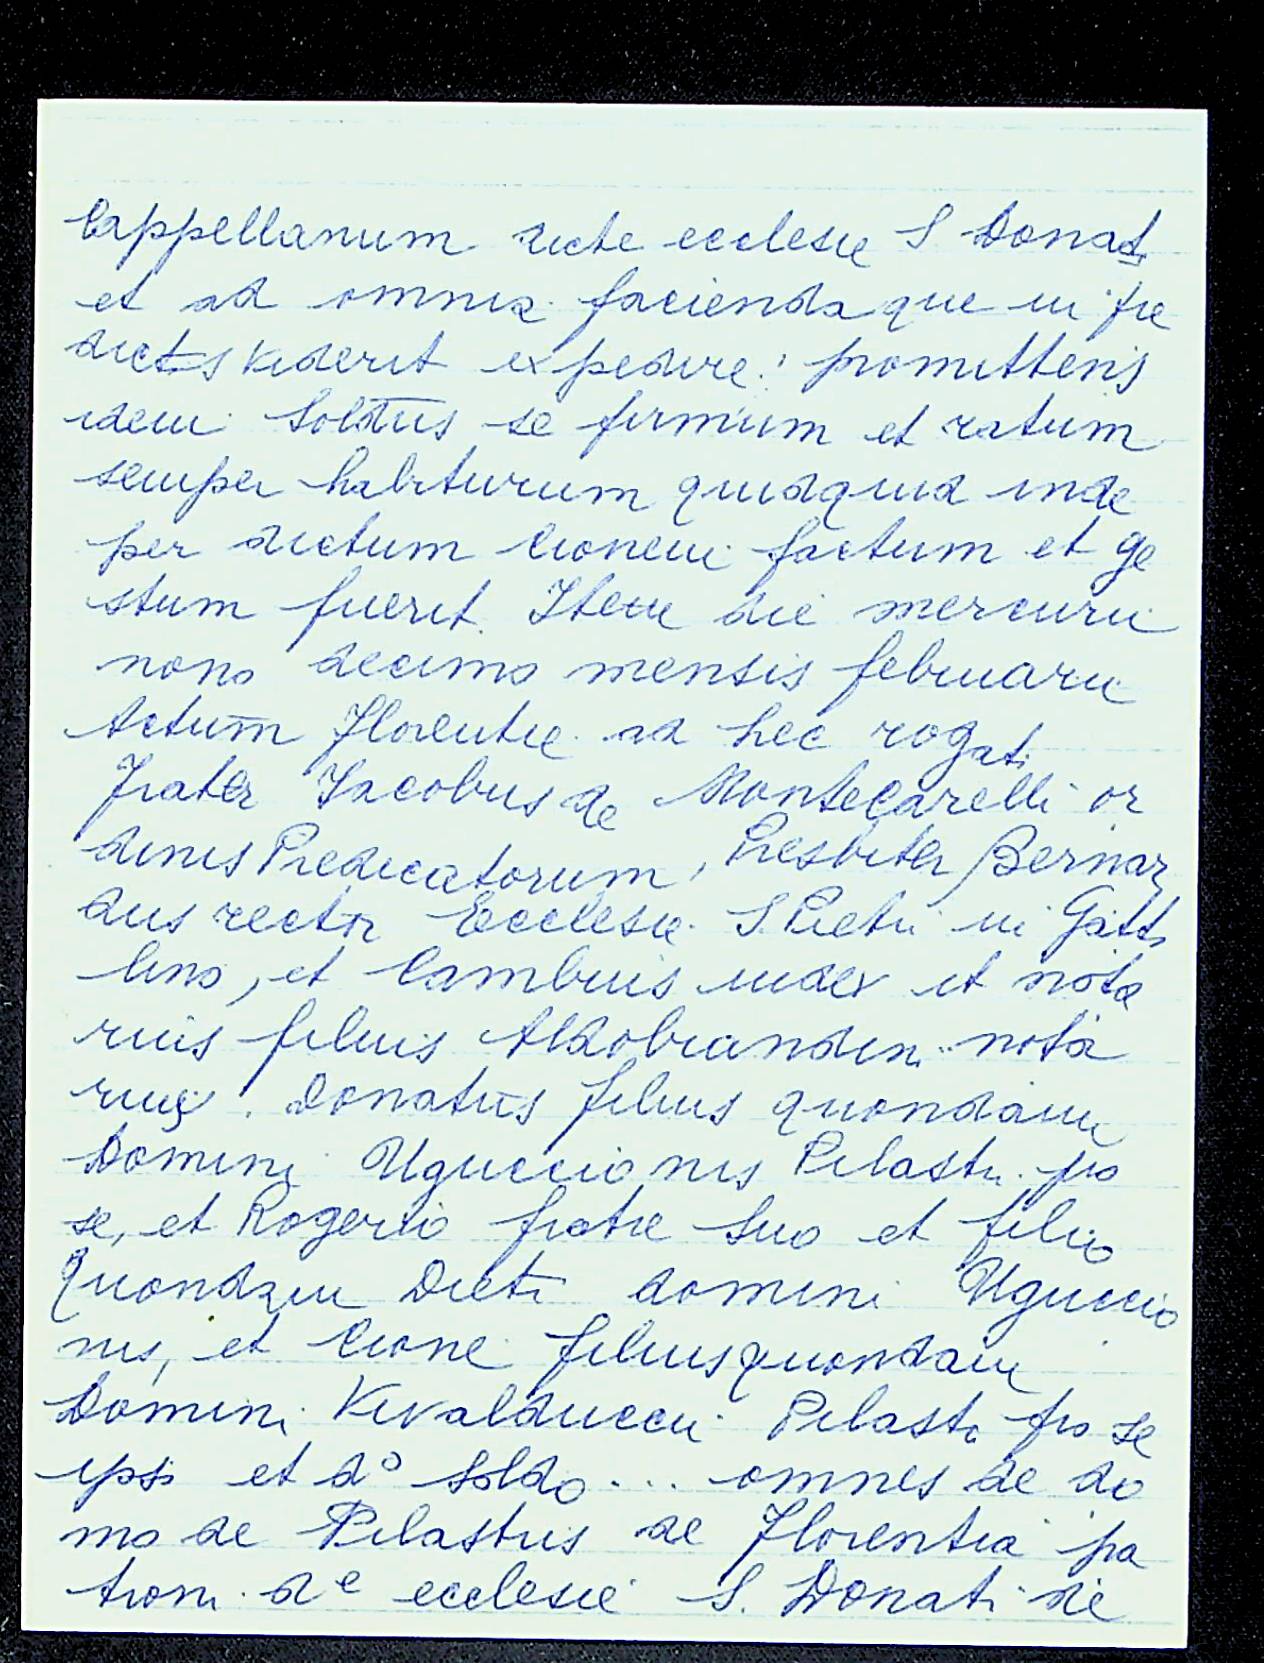 Cappellanum dicte ecclesie S Donati
et ad omnia facienda que in pre
dictis viderit expedire: promittens
idem Soldus se firmum et ratum
semper habiturum quidquid inde
per dictum Cionem factum et ge
stum fuerit. Item die mercurii
nono decimo mensis februarii
Actum Florentie ad hec rogati
Frater Iacobus de Montecarelli or
dinis Predicatorum, Presbiter Bernar
dus rector Ecclesie S. Petri in Gatto
lino, et Cambius iudex et nota
rius filius Aldobrandini nota
rius. Donatus filius quondam
Domini Uguccionis Pilastri pro
se, et Rogerio fratre suo et filio
quondam Dicti domini Uguccio
nis, et Cione filius quondam
Domini Vivalduccii Pilasti pro se
ipso et d° Soldo ... omnes de do
mo de Pilastris de Florentia pa
troni d e ecclesie S. Donati de